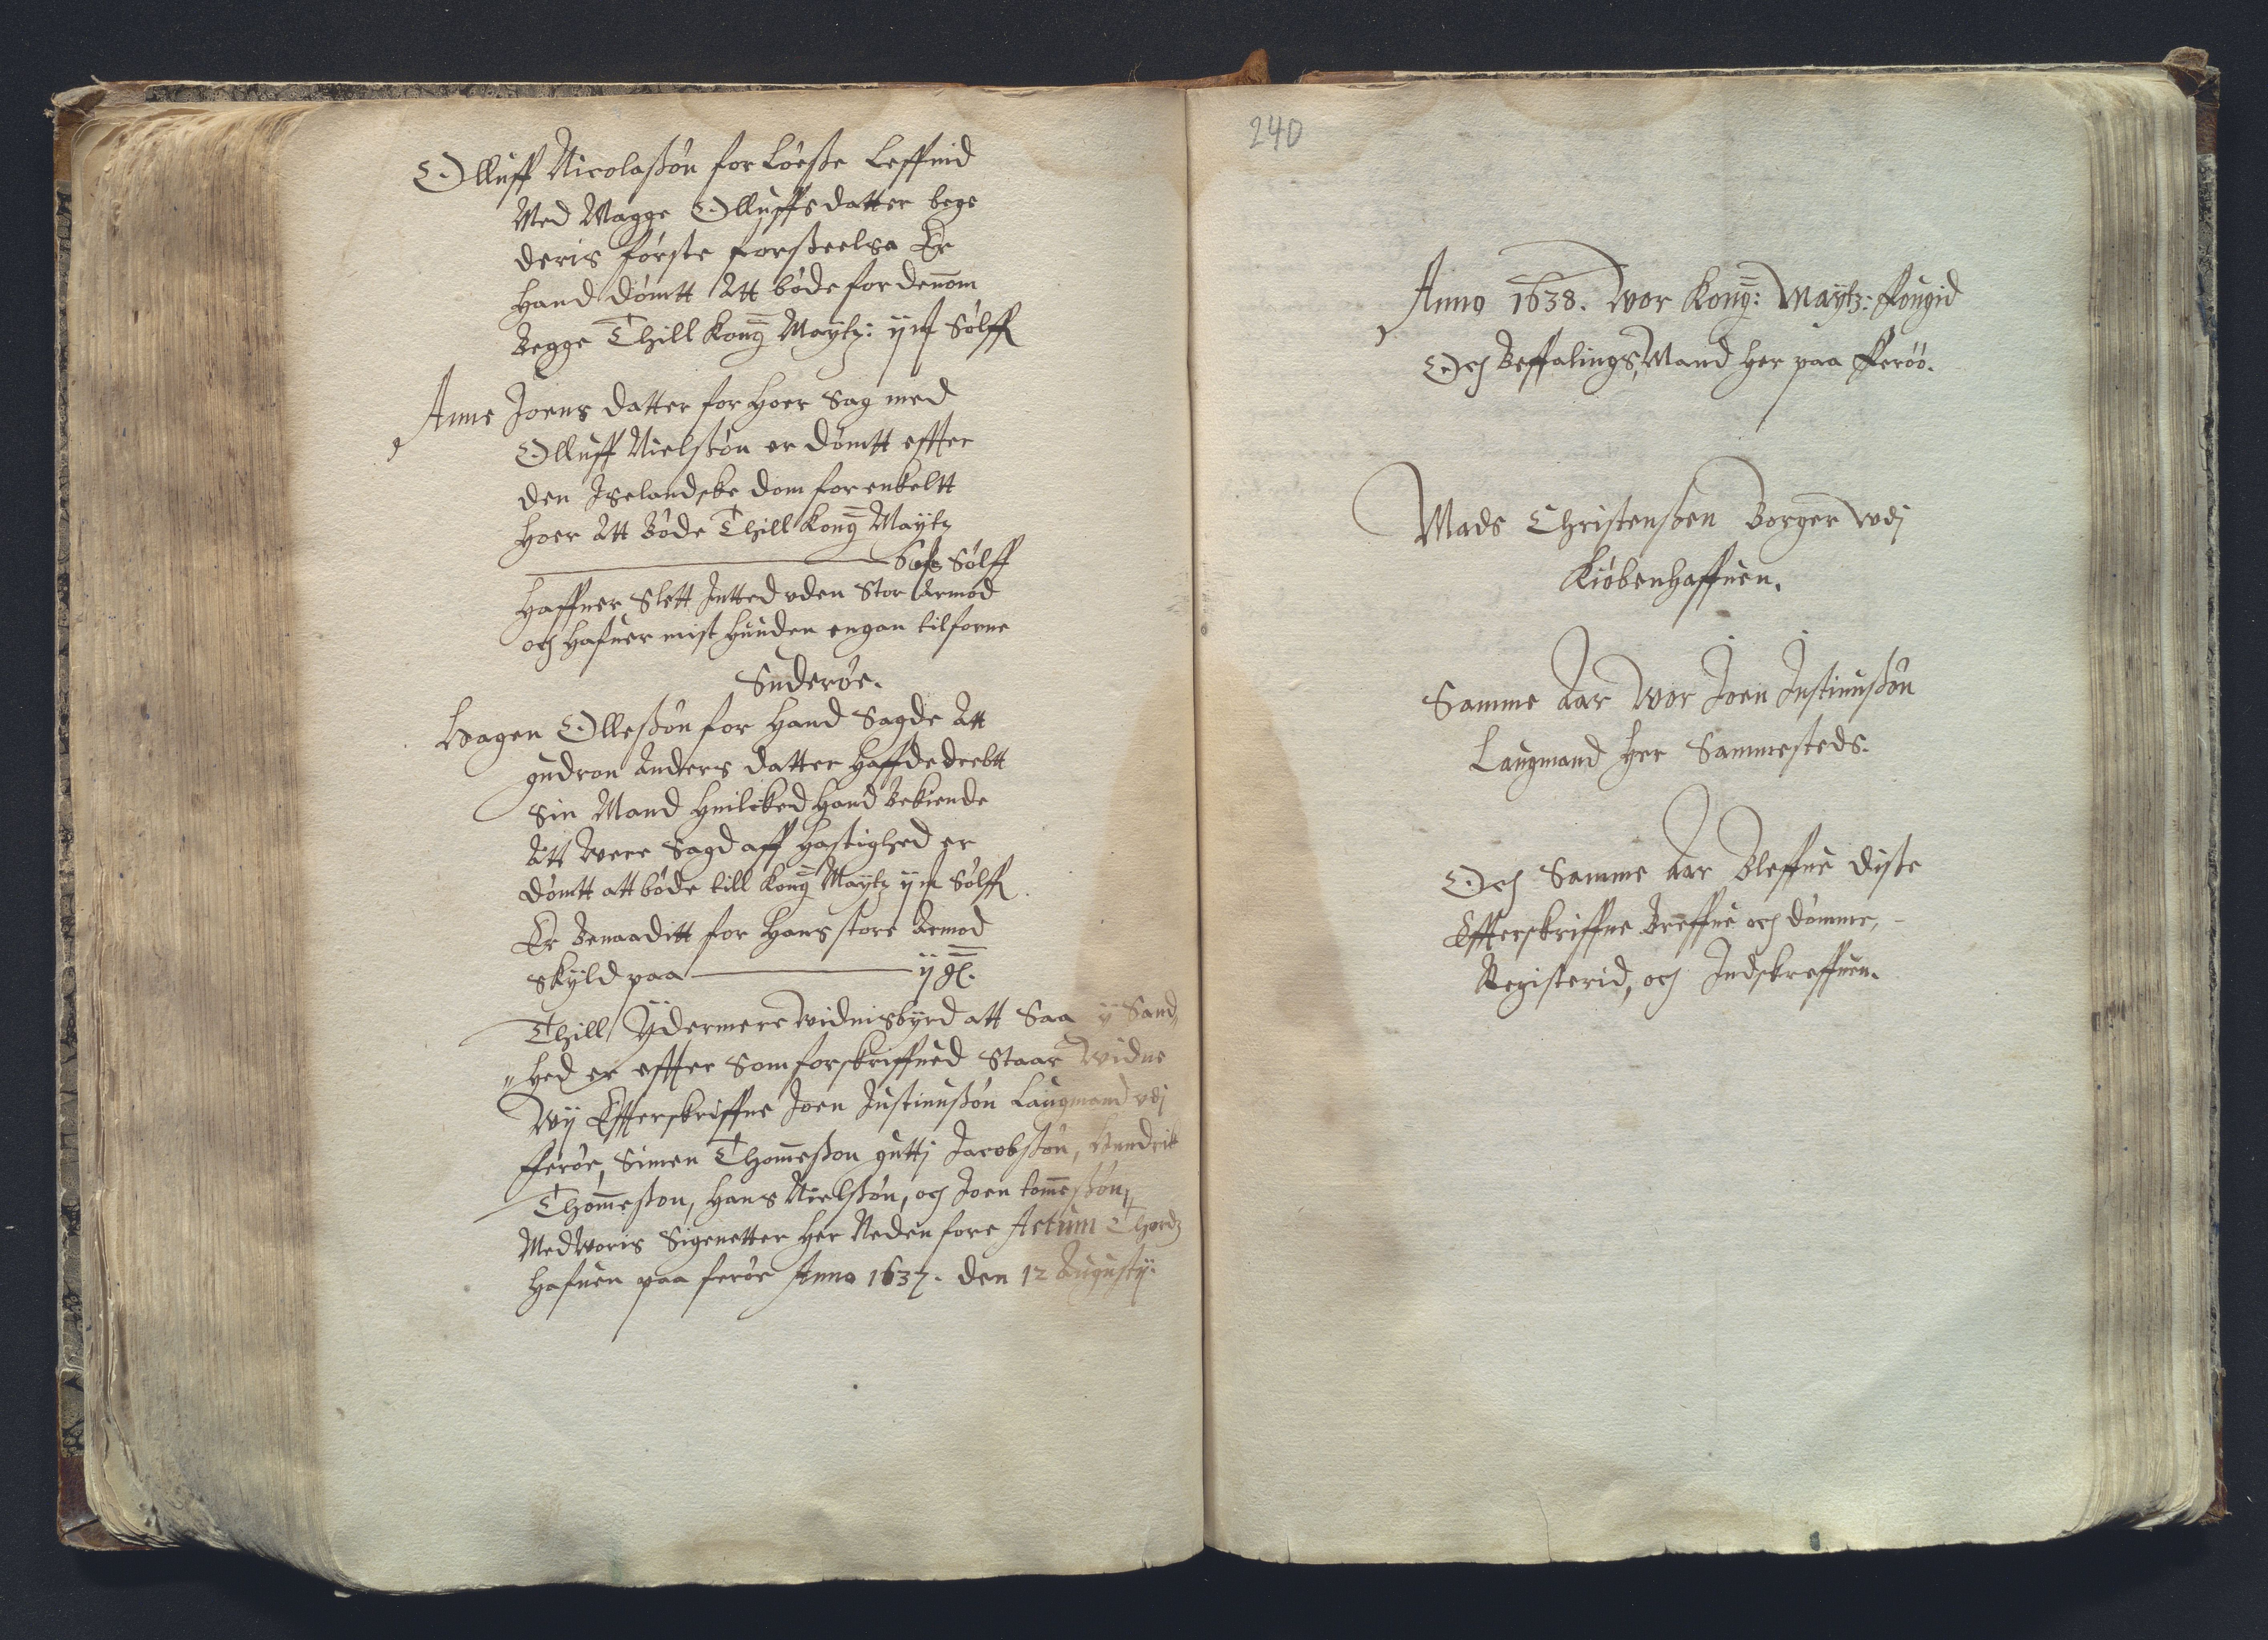 Olluff Nicolaßøn for Løeße Leffnid
Med Magge Olluffs datter bege
deris første forseelse Er
Hand dømtt Att bøde for dennom
Begge Thill Kong Maÿtz: ij m Sølff
Anne Joens datter for Hoer Sag med
Olluff Nielsøn er dømtt effter
den Iselandske dom for enkeltt
Hoer Att Bøde Thill Kong Maÿtz
Sølff
Haffuer Slett Intted uden Stor Armod
och Hafuer mist Huuden engan tilforne
Suderøe.
Hagen Olleßøn for Hand Sagde Att
gudron Anders datter Haffde drebtt
Sin Mand Huilcked Hand Bekiende
Att Were Sagd aff Hastighed er
dømtt att bøde till Kong Maÿtz ij m Sølff
Er Benaaditt for Hans store Armod
skÿld paa ij gl.
Thill Ÿdermere Widnisbÿrd att Saa ÿ Sand„
„Hed er effter Som forskriffued Staar Widne
Wÿ Effterskriffne Joen Justinußøn Laugmand vdj
Ferøe, Simen Thomeßon guttj Jacobßøn, Hendrik
Thomeßon, Hans Nielßøn, och Joen tomeßøn,
Med Woris Sigenetter Her Neden fore Actum Thordz
Hafuen paa ferøe Anno 1637. den 12 Augustÿ.
240
Anno 1638. Wor Kong: Maÿtz: Fougid
Och Beffalings Mand Her paa Ferøø.
Mads Christenßen Borger Wdj
Kiøbenhaffuen.
Samme Aar Wor Joen Justinußøn
Laugmand Her Sammesteds.
Och Samme Aar Bleffue Disse
Effterskriffne Breffue och Domme,
Registerid, och Indskreffuen.